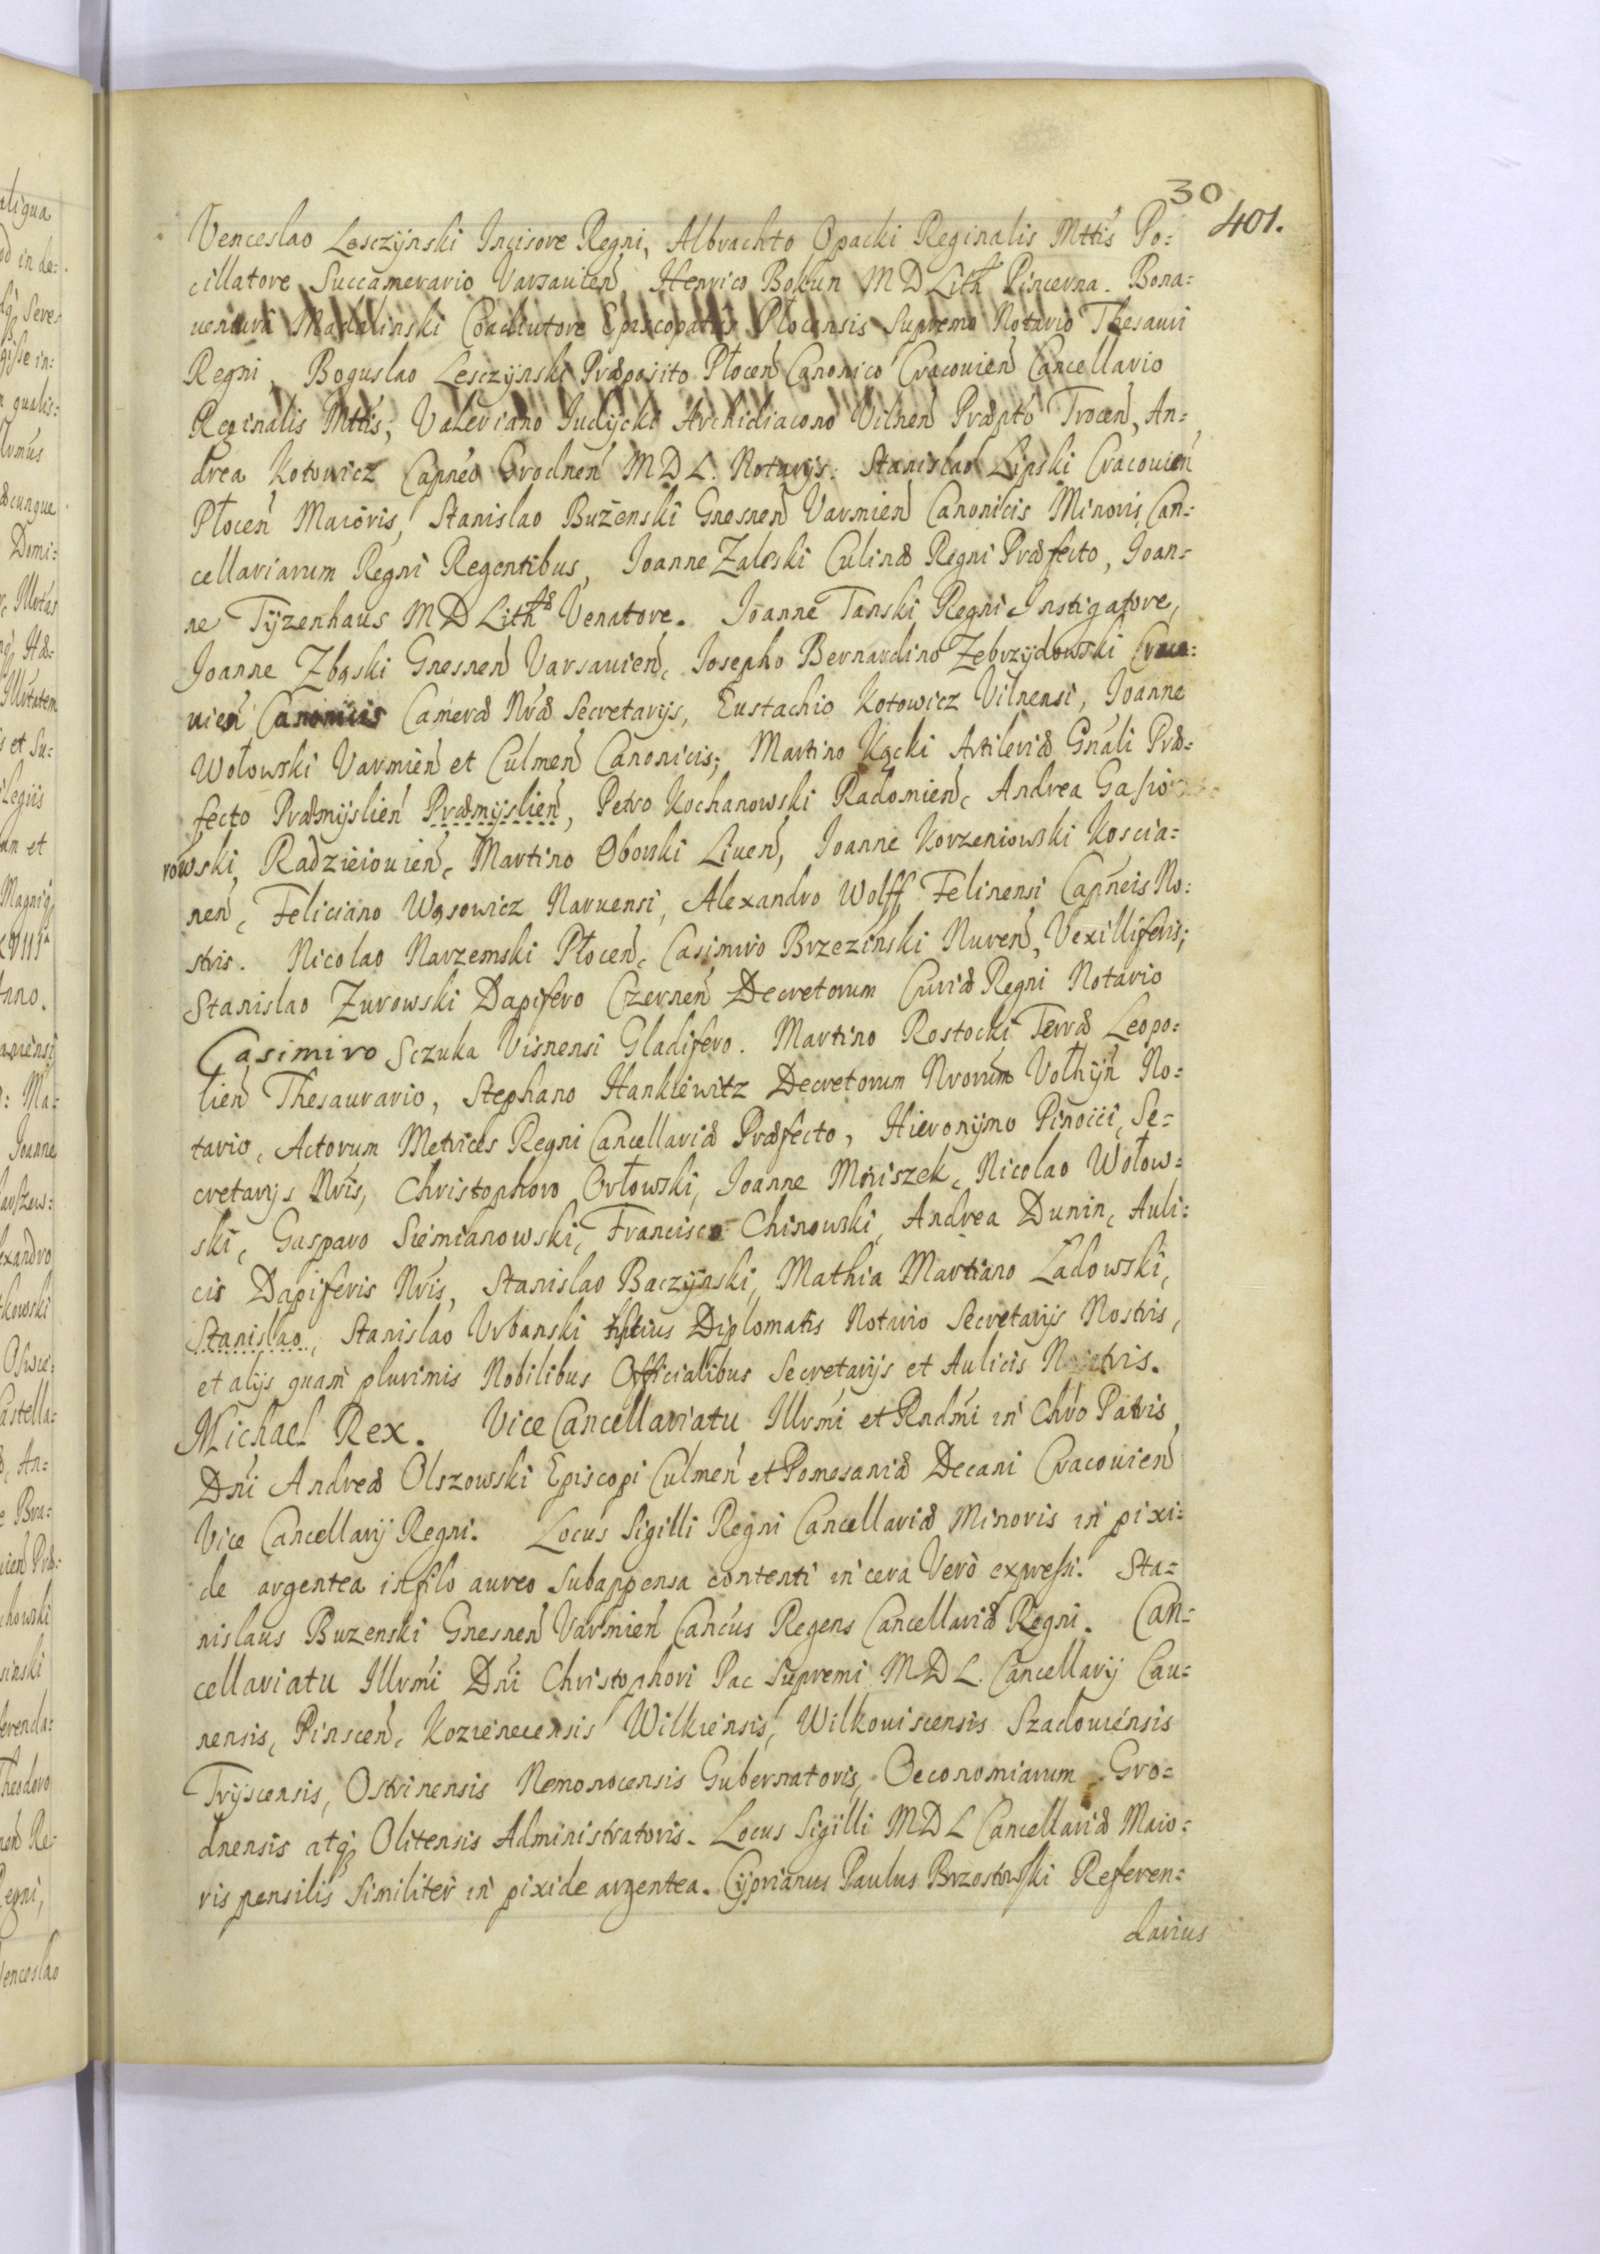 30
401.
Venceslao Lesczÿnski Incisore Regni, Albrachto Opacki Reginalis Mttis Po:
cillatore Succamerario Varsauien̄, Henrico Bokun M D Lith Pincerna. Bona:
uentura Madalinski Coadiutore Episcopatus Płocensis Supremo Notario Thesauri
Regni, Boguslao Lesczÿnski Præposito Płocen̄ Canonico Cracouien̄ Cancellario
Reginalis Mttis, Valeriano Judÿcki Archidiacono Vilnen̄ Præpto Trocen̄, An:
drea Kotowicz Capneo Grodnen̄ M D L. Notarÿs. Stanislao Lipski Cracouien̄
Płocen̄ Maioris, Stanislao Bużenski Gnesnen̄ Varmien̄ Canonicis Minoris Can:
cellariarum Regni Regentibus, Joanne Zaleski Culinæ Regni Præfecto, Joan:
ne Tÿzenhaus M D Lithæ Venatore. Joanne Tanski Regni Instigatore,
Joanne Zbąski Gnesnen̄ Varsauien̄, Josepho Bernardino Zebrzÿdowski Craco:
uien̄ Canonicis Cameræ Nræ Secretarÿs, Eustachio Kotowicz Vilnensi, Joanne
Wołowski Varmien̄ et Culmen̄ Canonicis; Martino Kącki Artileriæ Gn̄ali Præ:
fecto Præmÿslien̄ Præmÿslien̄, Petro Kochanowski Radomien̄, Andrea Gasio
rowski, Radzieiouien̄, Martino Oborski Liuen̄, Joanne Korzeniowski Koscia:
nen̄, Feliciano Wąsowicz Naruensi, Alexandro Wolff Felinensi Capneis No:
stris. Nicolao Narzemski Płocen̄, Casimiro Brzezinski Nuren̄, Vexilliferis;
Stanislao Zurowski Dapifero Czernen̄ Decretorum Curiæ Regni Notario
Casimiro Sczuka Visnensi Gladifero. Martino Rostocki Terræ Leopo:
lien̄ Thesaurario, Stephano Hankiewitz Decretorum Nrorum Volhÿn̄ No:
tario, Actorum Metrices Regni Cancellariæ Præfecto, Hieronÿmo Pinocci, Se:
cretarÿs Nris, Christophoro Orłowski, Joanne Mniszek, Nicolao Wołow:
ski, Gasparo Siemianowski, Francisco Chinowski, Andrea Dunin, Auli:
cis Dapiferis Nris, Stanislao Baczÿnski, Mathia Martiano Ładowski,
Stanislao, Stanislao Vrbanski Diplomatis Notario Secretarÿs Nostris,
et alÿs quam plurimis Nobilibus Officialibus Secretarÿs et Aulicis Nostris.
Michael Rex. Vice Cancellariatu Illrmi et Rndmi in Chro Patris
Dni Andreæ Olszowski Episcopi Culmen̄ et Pomesaniæ Decani Cracouien̄
Vice Cancellarÿ Regni. Locus Sigilli Regni Cancellariæ Minoris in pixi:
de argentea in filo aureo subappensa contenti in cera Verò expressi. Sta:
nislaus Buzenski Gnesnen̄ Varmien̄ Cancus Regens Cancellariæ Regni. Can:
cellariatu Illrmi Dni Christophori Pac Supremi M D L. Cancellarÿ Cau:
nensis, Pinscen̄, Kozienecensis Wilkiensis, Wilkouiscensis Szadouiensis
Trÿscensis, Ostrinensis Nemonocensis Gubernatoris, Oeconomiarum Gro:
dnensis atq Olitensis Administratoris. Locus Sigilli M D L Cancellariæ Maio:
ris pensilis similiter in pixide argentea. Cÿprianus Paulus Brzostowski Referen:
darius